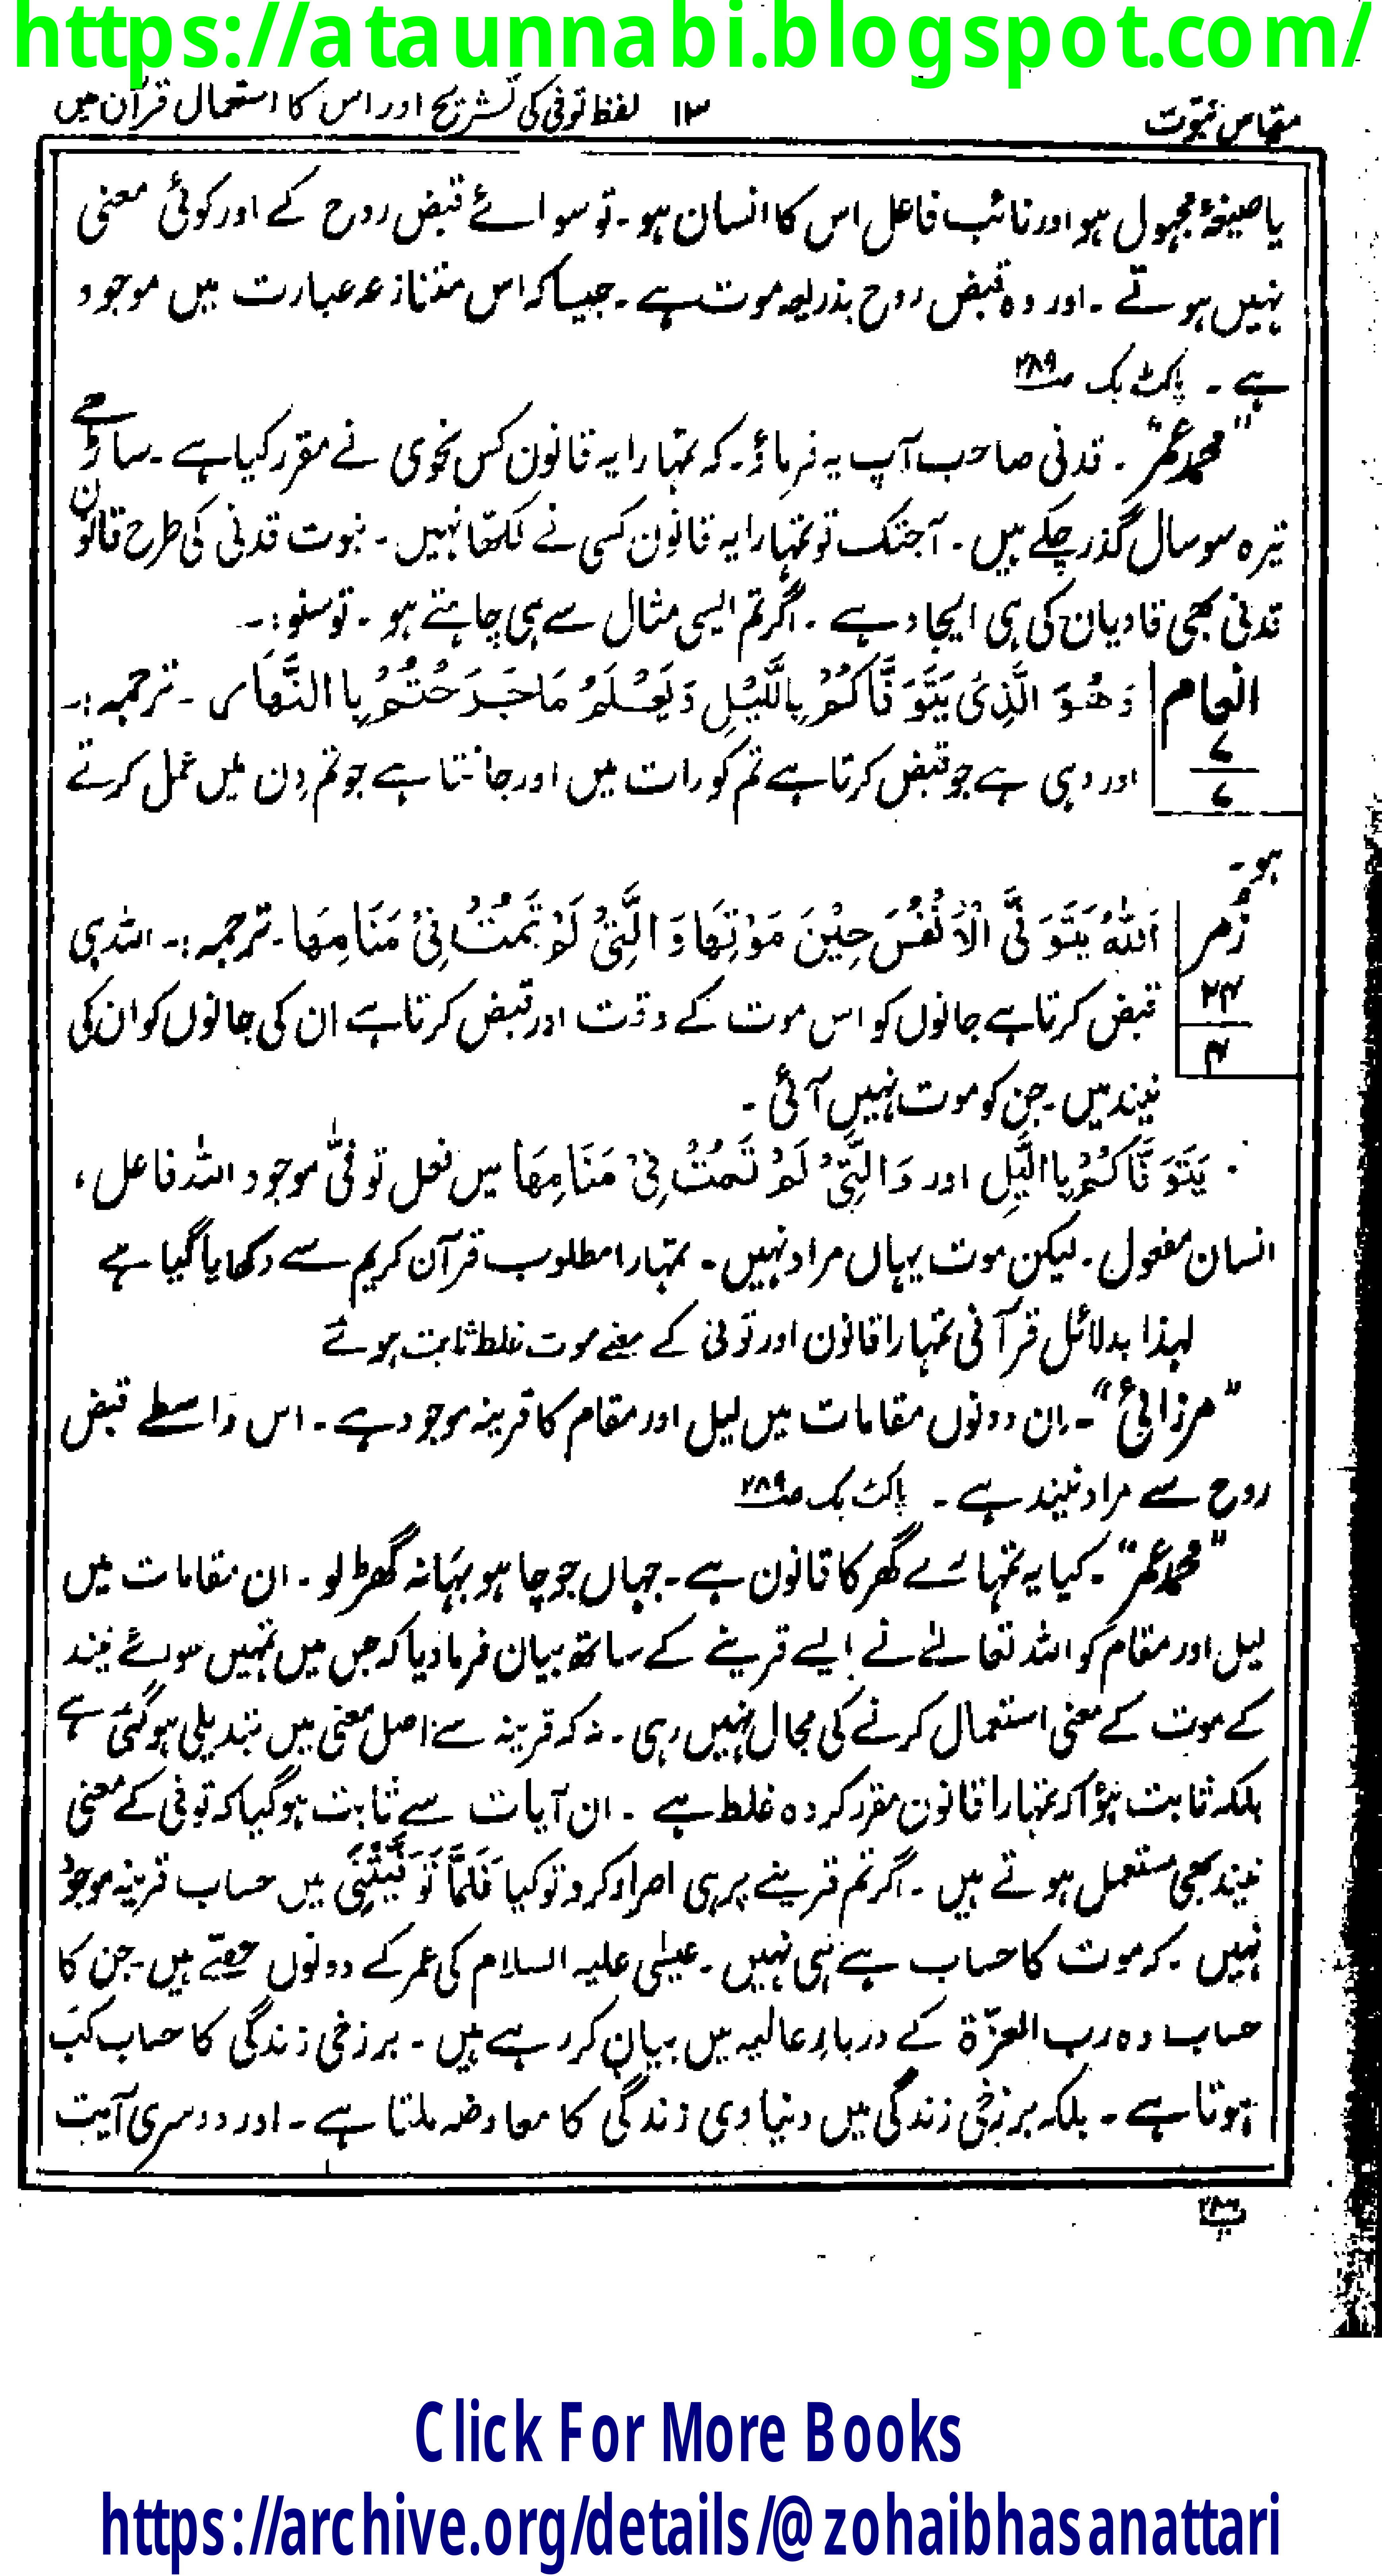 https://ataunnabi.blogspot.com/
مقیاس نبوت ۱۳ لفظ توفی کی تشریح اور اس کا استعمال قرآن میں
یا صیغۂ مجہول ہو اور نائب فاعل اس کا انسان ہو۔ تو سوائے قبض روح کے اور کوئی معنی
نہیں ہوتے ۔ اور وہ قبض روح بذریعہ موت ہے ۔ جیسا کہ اس متنازعہ عبارت میں موجود
ہے ۔ پاکٹ بک ص ۲۸۹
"محمد عمر" ۔ قدنی صاحب آپ یہ فرماؤ۔ کہ تمہارا یہ قانون کس نحوی نے مقرر کیا ہے ۔ ساڑھے
تیرہ سو سال گذر چکے ہیں ۔ آجتک تو تمہارا یہ قانون کسی نے لکھا نہیں ۔ نبوت قدنی کی طرح قانون
قدنی بھی قادیان کی ہی ایجاد ہے ۔ اگر تم ایسی مثال سے ہی چاہتے ہو ۔ تو سنو :۔
انعام ۷/۷ وَهُوَ الَّذِیْ یَتَوَفَّاکُمْ بِاللَّیْلِ وَیَعْلَمُ مَا جَرَحْتُمْ بِا النَّهَارِ ۔ ترجمہ :۔
اور وہی ہے جو قبض کرتا ہے تم کو رات میں اور جانتا ہے جو تم دِن میں عمل کرتے
ہو ۔
زُمر ۲۴/۴ اَللّٰہُ یَتَوَفَّی الْاَنْفُسَ حِیْنَ مَوْتِهَا وَ الَّتِیْ لَمْ تَمُتْ فِیْ مَنَامِهَا ۔ ترجمہ :۔ اللہ ہی
قبض کرتا ہے جانوں کو اس موت کے وقت اور قبض کرتا ہے ان کی جانوں کو ان کی
نیند میں ۔ جن کو موت نہیں آئی ۔
۰ یَتَوَفَّاکُمْ بِا الَّیْلِ اور وَالَّتِیْ لَمْ تَمُتْ فِیْ مَنَامِهَا میں فعل توفیّٰ موجود اللہ فاعل ،
انسان مفعول ۔ لیکن موت یہاں مراد نہیں ۔ تمہارا مطلوب قرآن کریم سے دکھایا گیا ہے
لہذا بدلائل قرآنی تمہارا قانون اور توفی کے معنے موت غلط ثابت ہوئے
"مرزائی" ۔ اِن دونوں مقامات میں لیل اور مقام کا قرینہ موجود ہے ۔ اس واسطے قبض
روح سے مراد نیند ہے ۔ پاکٹ بک ص ۲۸۹
"محمد عمر" ۔ کیا یہ تمہارے گھر کا قانون ہے ۔ جہاں جو چاہو بہانہ گھڑ لو ۔ ان مقامات میں
لیل اور مقام کو اللہ تعالےٰ نے ایسے قرینے کے ساتھ بیان فرما دیا کہ جس میں تمہیں سوائے نیند
کے موت کے معنی استعمال کرنے کی مجال نہیں رہی ۔ نہ کہ قرینہ سے اصل معنی میں تبدیلی ہو گئی ہے
بلکہ ثابت ہؤا کہ تمہارا قانون مقرر کردہ غلط ہے ۔ ان آیات سے ثابت ہو گیا کہ توفی کے معنی
نیند بھی مستعمل ہوتے ہیں ۔ اگر تم قرینے پر ہی اصرار کرو تو کیا فَلَمَّا تَوَفَّیْتَنِیْ میں حساب قرینہ موجود
نہیں ۔ کہ موت کا حساب ہے ہی نہیں ۔ عیسٰی علیہ السلام کی عمر کے دونوں حصّے ہیں ۔ جن کا
حساب وہ رب العزّة کے دربارِ عالیہ میں بیان کر رہے ہیں ۔ برزخی زندگی کا حساب کب
ہوتا ہے ۔ بلکہ برزخی زندگی میں دنیاوی زندگی کا معاوضہ ملتا ہے ۔ اور دوسری آیت
Click For More Books
https://archive.org/details/@zohaibhasanattari